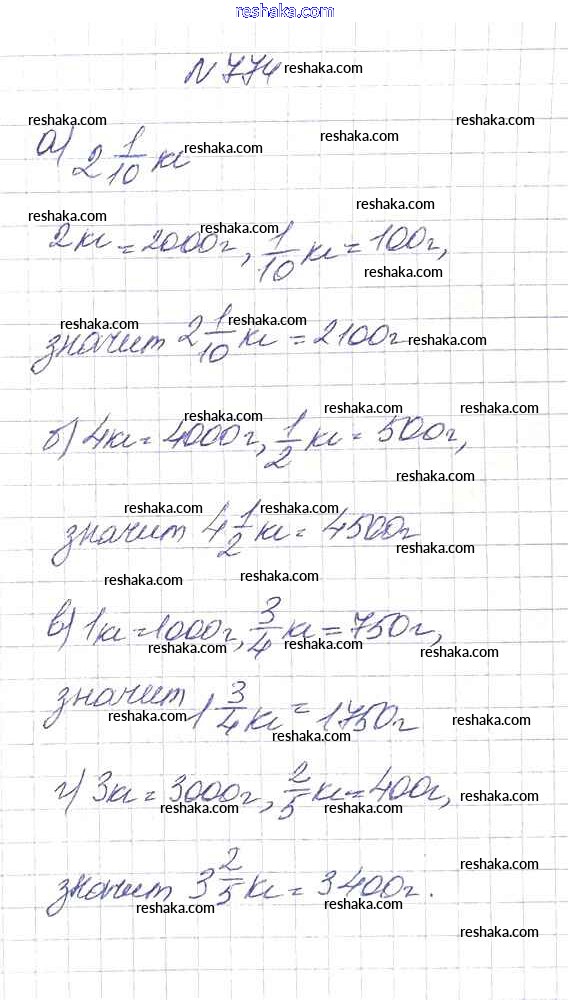 reshaka.com
N 774
а) 2 1/10 кг
2кг = 2000г, 1/10 кг = 100г,
значит 2 1/10 кг = 2100г
б) 4кг = 4000г, 1/2 кг = 500г,
значит 4 1/2 кг = 4500г
в) 1кг = 1000г, 3/4 кг = 750г,
значит 1 3/4 кг = 1750г
г) 3кг = 3000г, 2/5 кг = 400г,
значит 3 2/5 кг = 3400г.